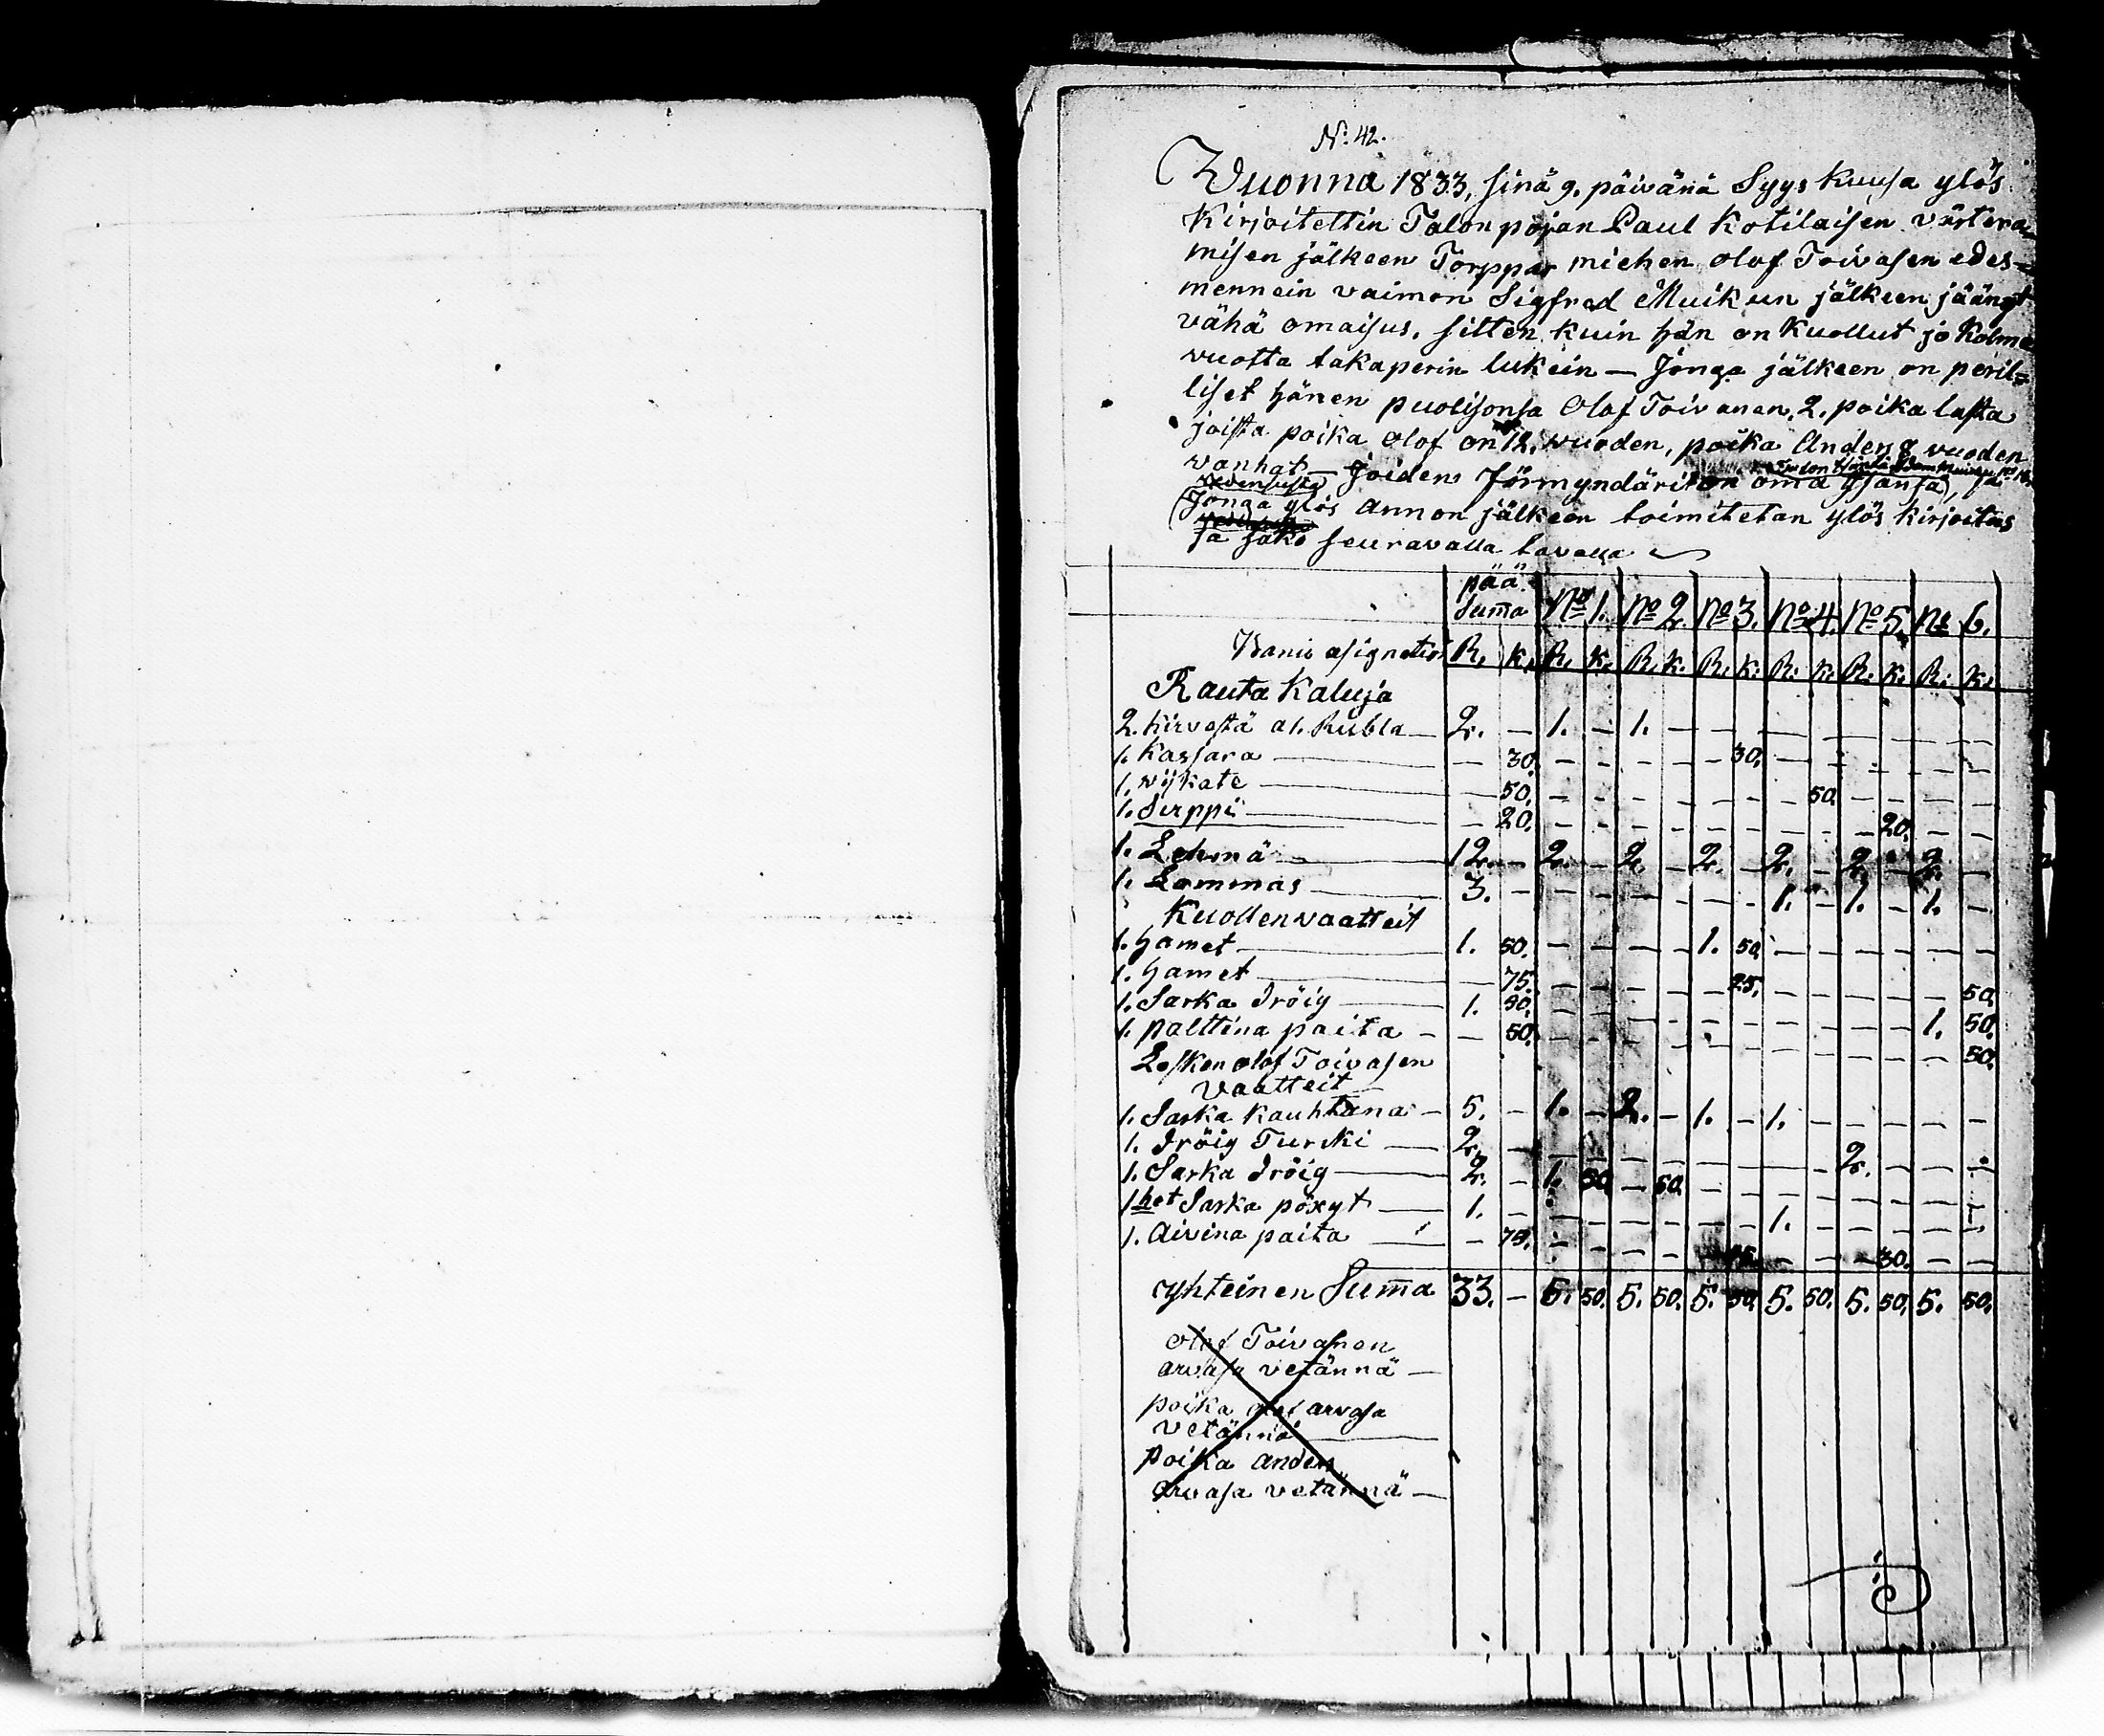 N:42.
Wuonna 1833, sinä 9. päivänä Syys Kuusa ylös
Kirjoitettin Talon pojan Paul Kotilaisen värtera=
misen jälkeen Torppar miehen olof Toivasen edes=
mennein vaimon Sigfred Muikun jälkeen jäänyt
vähä omaisus, sitten kuin hän on Kuollut jo Kolme
vuotta takaperin lukein — Jonga jälkeen on peril=
liset hänen puolisonsa Olof Toivanen, 2. poika lasta
joista poika olof on 12. vuoden, poika Anders 8 vuoden
vanhat — Joidens Förmyndäri on oma Isänsä, ja
Jonga ylös annon jälkeen toimitetan ylös kirjoitus
ja jako seuravalla tavalla
pää Suma No 1. No 2. No 3. No 4. No 5. No 6.
Banio asignation R. k. R. k. R. k. R. k. R. k. R. k. R. k.
Rauta Kaluja
2. kirvestä a 1. Rubla — 2. — 1. — 1. — — — — — — — — —
1. Kassara — — 30. — — — — — 30. — — — — — —
1. wijkate — — 50. — — — — — — — 50. — — — —
1. Sirppi — — 20. — — — — — — — — — 20. — —
1. Lehmä — 12. — 2. — 2. — 2. — 2. — 2. — 2. —
1. Lammas — 3. — — — — — — — 1. — 1. — 1. —
Kuollen vaatteit
1. hamet — 1. 50. — — — — 1. 50. — — — — — —
1. hamet — — 75. — — — — — 25. — — — — — 50.
1. Sarka Tröig — 1. 50. — — — — — — — — — — 1. 50.
1. palttina paita — — 50. — — — — — — — — — — — 50.
Lesken olof Toivasen
vaatteit
1. Sarka kauhtana — 5. — 1. — 2. — 1. — 1. — — — — —
1. Tröig Turcki — 2. — — — — — — — — — 2. — — —
1. Sarka Tröig — 2. — 1. 50. — 50. — — — — — — — —
1het Sarka pöxyt — 1. — — — — — — — 1. — — — — —
1. Aivina paita — — 75. — — — — — — — — 30. — —
Yhteinen Suma 33. — 5. 50. 5. 50. 5. 50. 5. 50. 5. 50. 5. 50.
olof Toivanen
arvasa vetännä —
poika olof arvasa
vetännä —
Poika anders
arvasa vetännä —